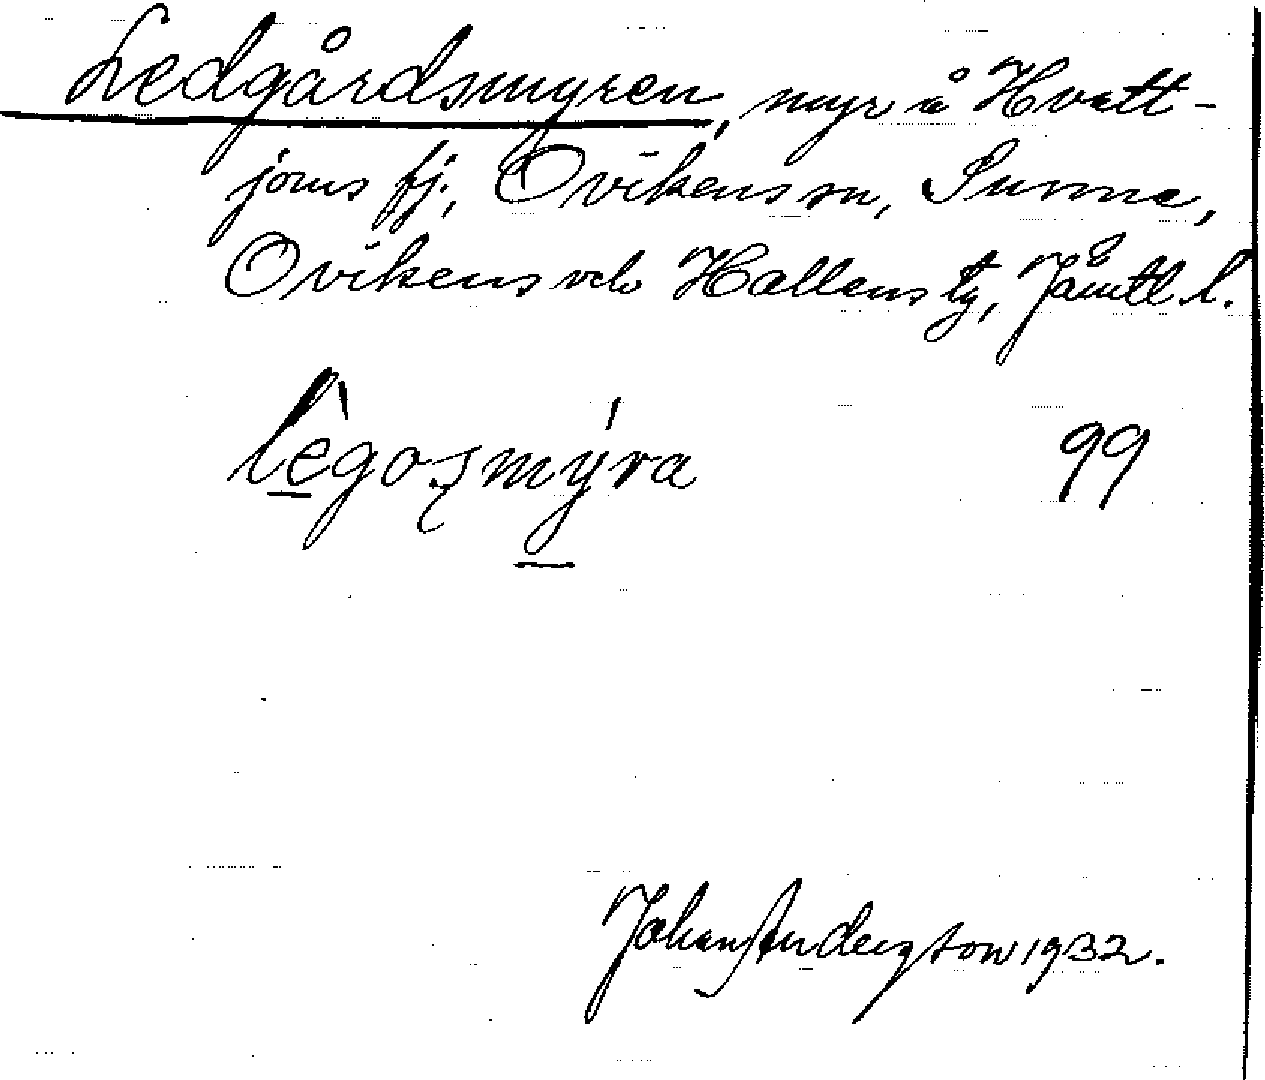 Ledgårdsmyren, myr å Hvatt-
joms fj., Ovikens sn, Sunne,
Ovikens och Hallens tg, Jämtl. l.
99
Johan Anderson 1932.